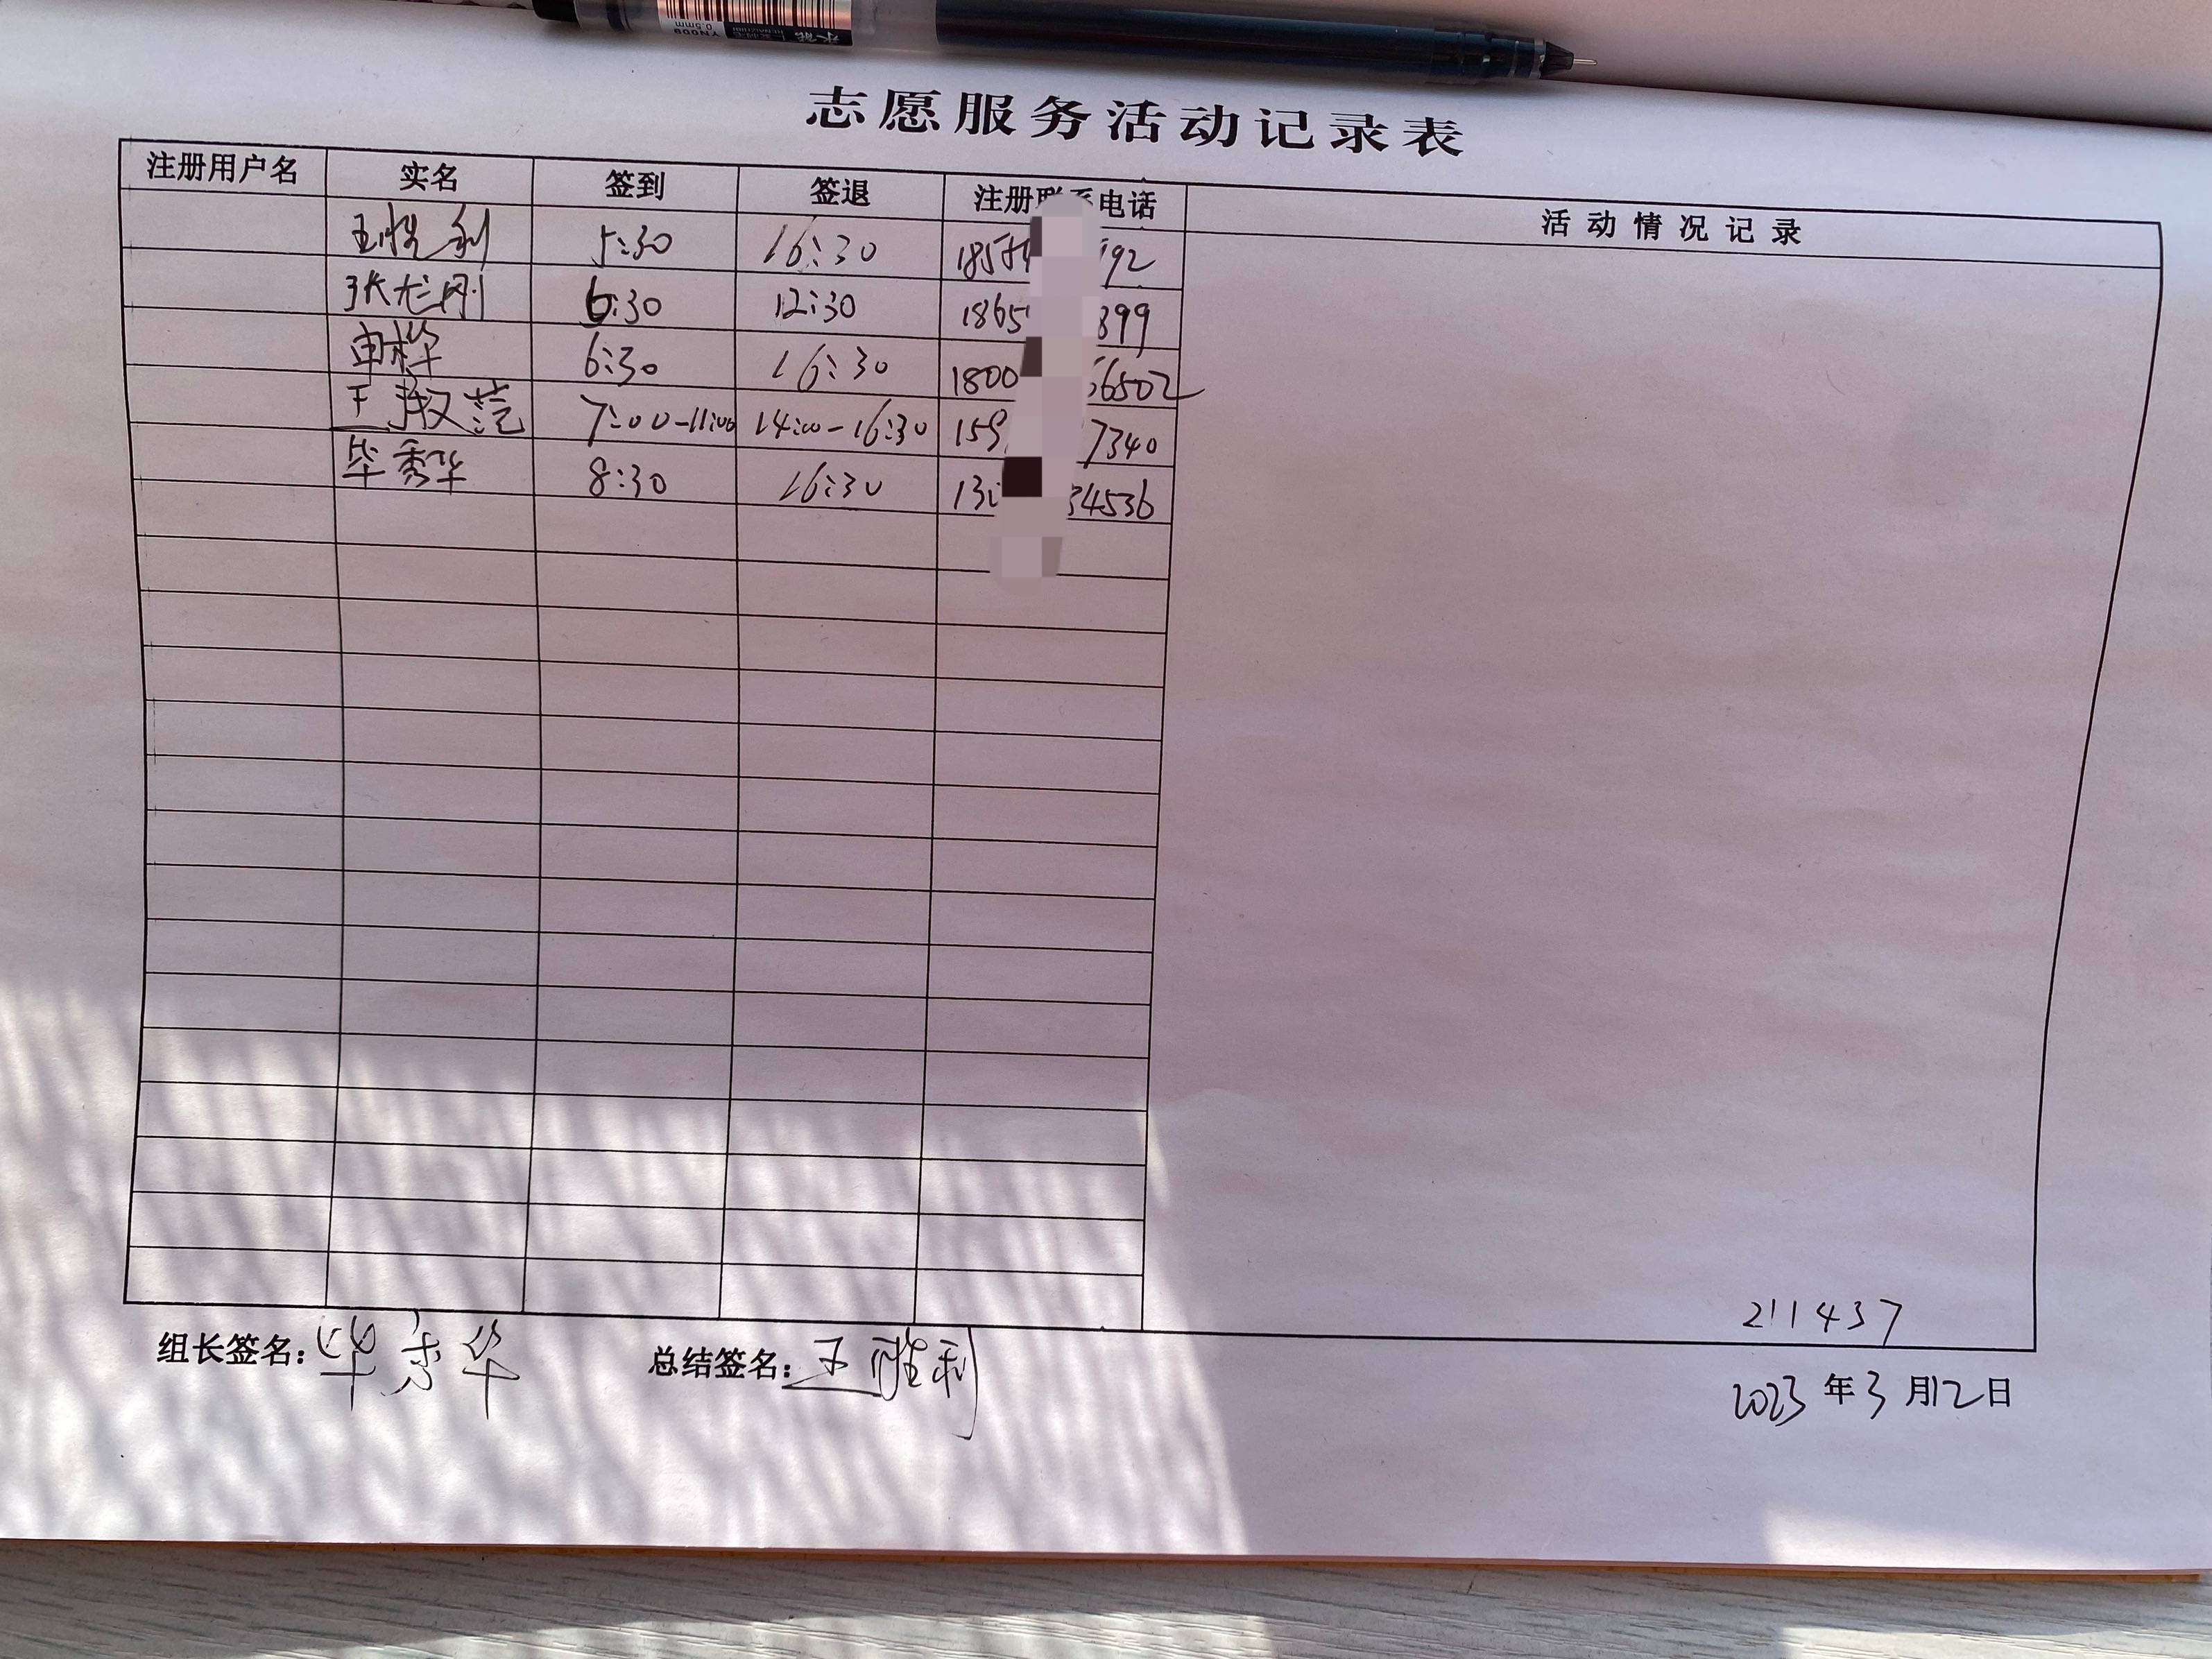 志愿服务活动记录表
注册用户名 实名 签到 签退 注册联系电话 活动情况记录
王胜利 5:30 16:30 185 92
张光刚 6:30 12:30 1865 899
单桦 6:30 16:30 1800 6502
王 范 7:00-11:00 14:00-16:30 159 7340
毕秀华 8:30 16:30 13 34536
211437
组长签名: 毕秀华 总结签名: 王胜利
2023年3月12日